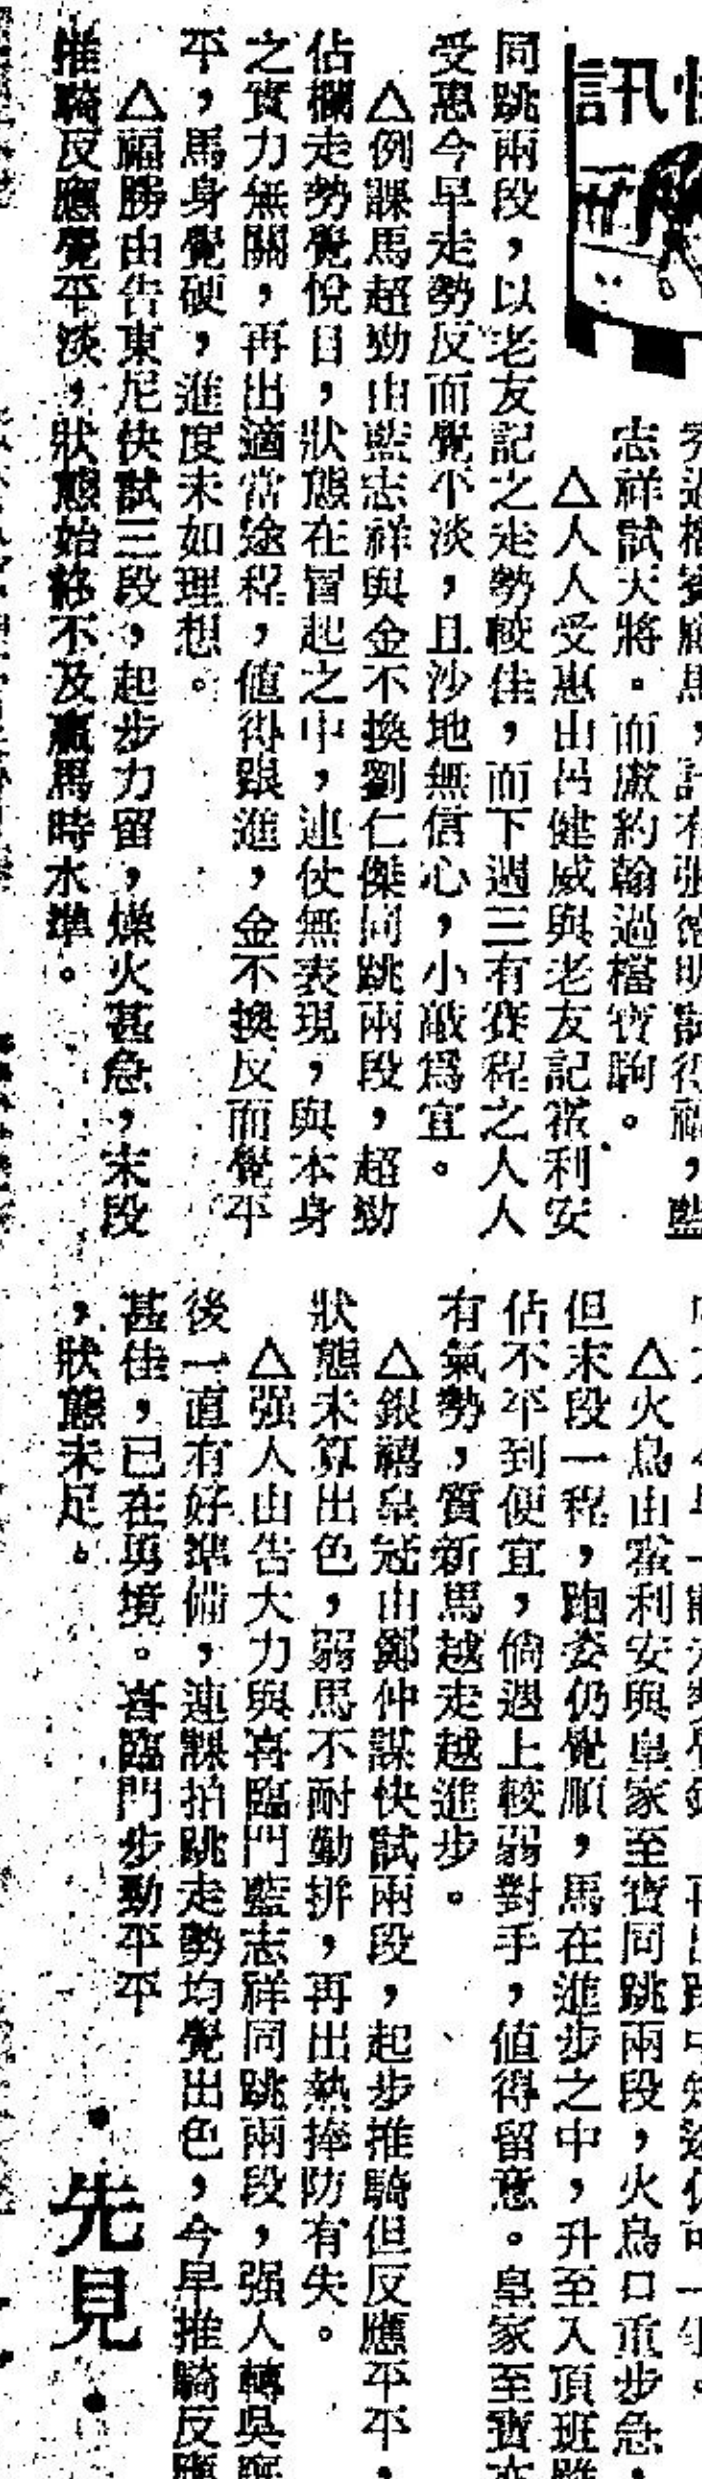 訊
志祥試天將。而盧約翰過檔寶駒。
△人人受惠由呂健威與老友記霍利安
同跳兩段，以老友記之走勢較佳，而下週三有賽程之人人
受惠今早走勢反而覺平淡，且沙地無信心，小敲爲宜。
△例課馬超勁由藍志祥與金不換劉仁傑同跳兩段，超勁
佔欄走勢覺悅目，狀態在冒起之中，連仗無表現，與本身
之實力無關，再出適當途程，值得跟進，金不換反而覺平
平，馬身覺硬，進度未如理想。
△福勝由告東尼快試三段，起步力留，爍火甚急，末段
推騎反應覺平淡，狀態始終不及贏馬時水準。
△火鳥由霍利安與皇家至寶同跳兩段，火鳥口重步急，
但末段一程，跑姿仍覺順，馬在進步之中，升至入頂班雖
佔不平到便宜，倘遇上較弱對手，值得留意。皇家至寶亦
有氣勢，質新馬越走越進步。
△銀禧皇冠由鄭仲謀快試兩段，起步推騎但反應平平，
狀態未算出色，弱馬不耐勤拼，再出熱捧防有失。
△强人由告大力與喜臨門藍志祥同跳兩段，强人轉吳
後一直有好準備，連課拍跳走勢均覺出色，今早推騎反應
甚佳，已在勇境。喜臨門步勁平平
，狀態未足。
·先見·